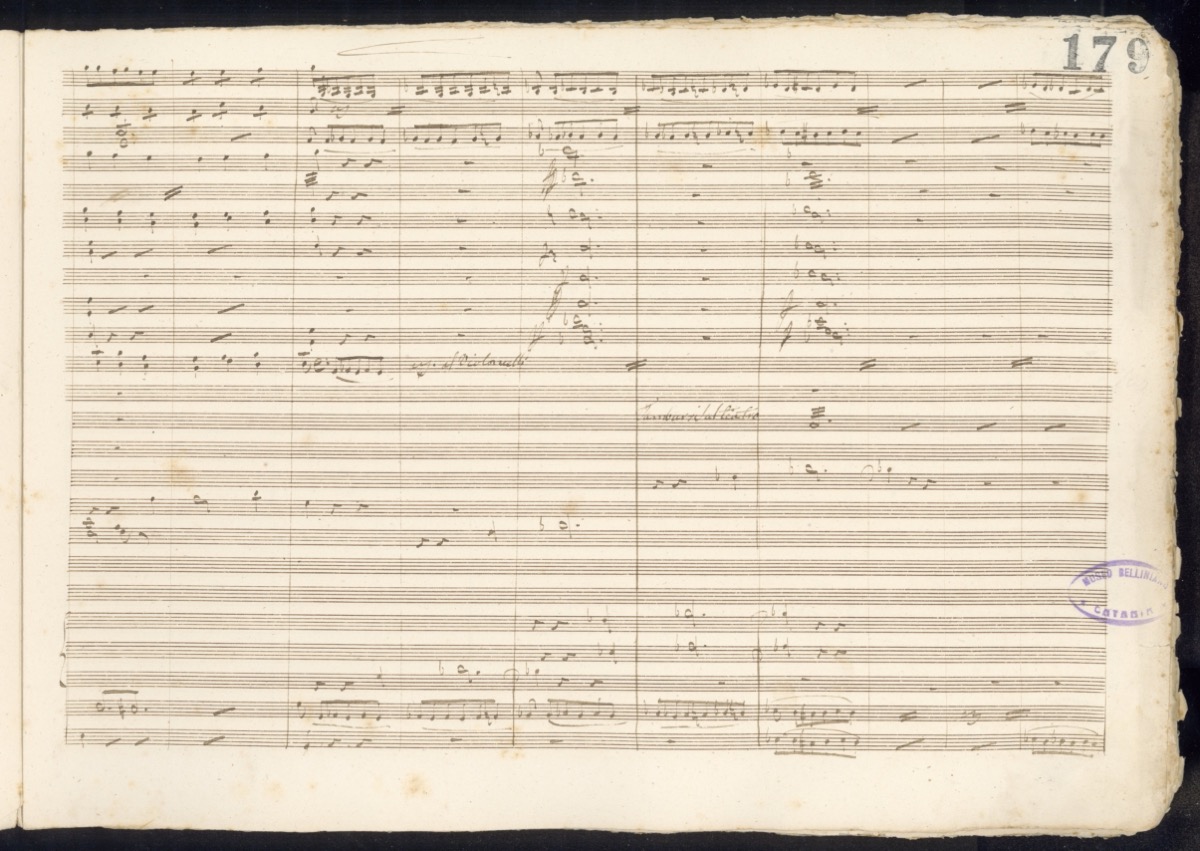 179
Violoncelli
Tamburi sul teatro
MUSEO BELLINIANO
CATANIA